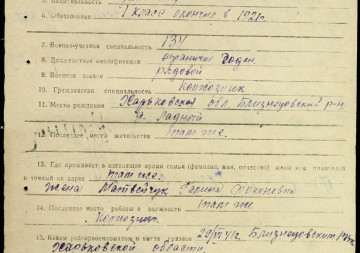 6. Образование 7 класс окончил в 1921г.
7. Военноучетная специальность 134
8. Должностная квалификация ограничено годен.
9. Воинское звание рядовой
10. Гражданская специальность Колхозник
11. Место рождения Харьковская обл. Близнецовский р-н
12. Последнее место жительства там же.
13. Где проживает в настоящее время семья (фамилия, имя, отчество) жены или родителей
и точный их адрес там же.
жена Матвейчук Галина
14. Последнее место работы и должность там же
Колхозник.
15. Каким райгорвоенкоматом и места призван Близнецовским
Харьковской области.